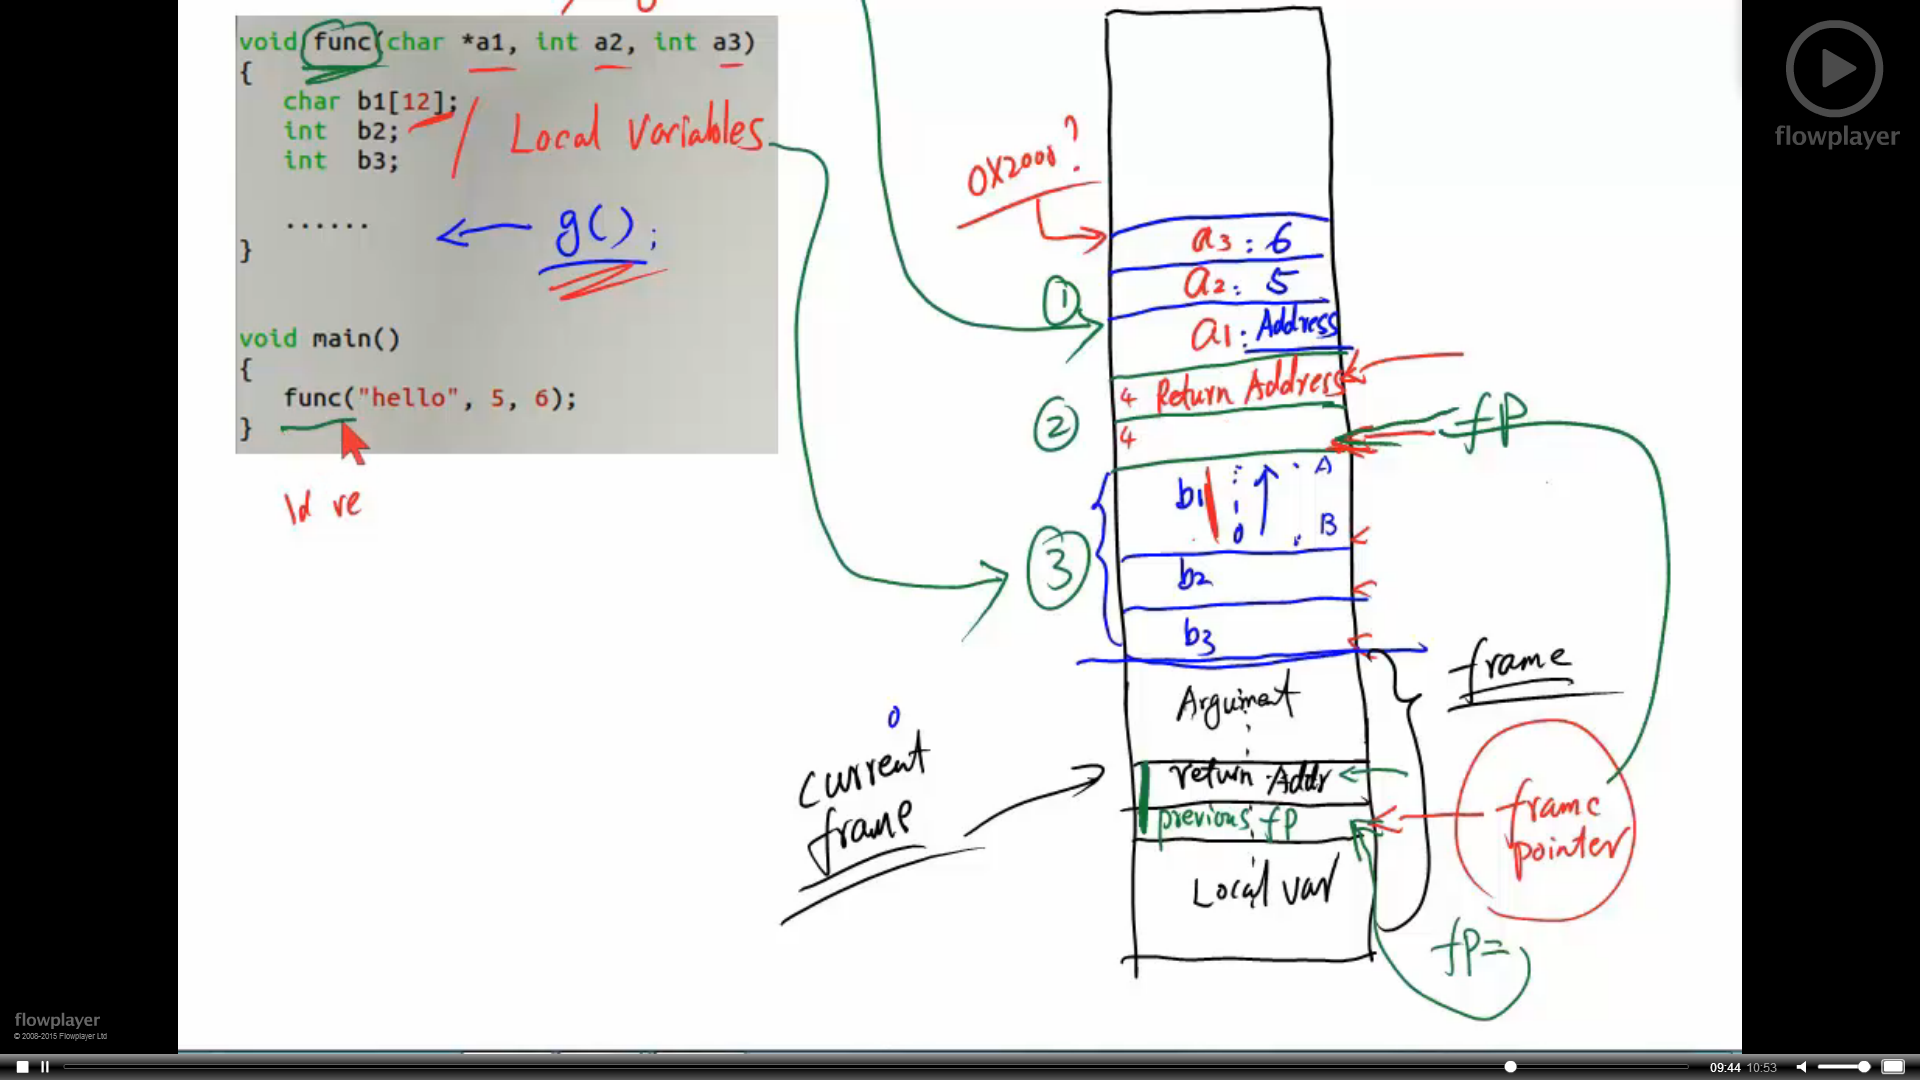 void func(char *a1, int a2, int a3)
{
char b1[12];
int b2;
int b3;
Local Variables
......
g();
}
void main()
{
func("hello", 5, 6);
}
0x2000?
a3: 6
a2: 5
a1: Address
4 Return Address
4
fp
1
2
3
b1
1
0
A
B
b2
b3
frame
Argument
return Addr
previous fp
Local var
0
current
frame
frame
pointer
fp=
flowplayer
flowplayer
© 2008-2015 Flowplayer Ltd
09:44 10:53